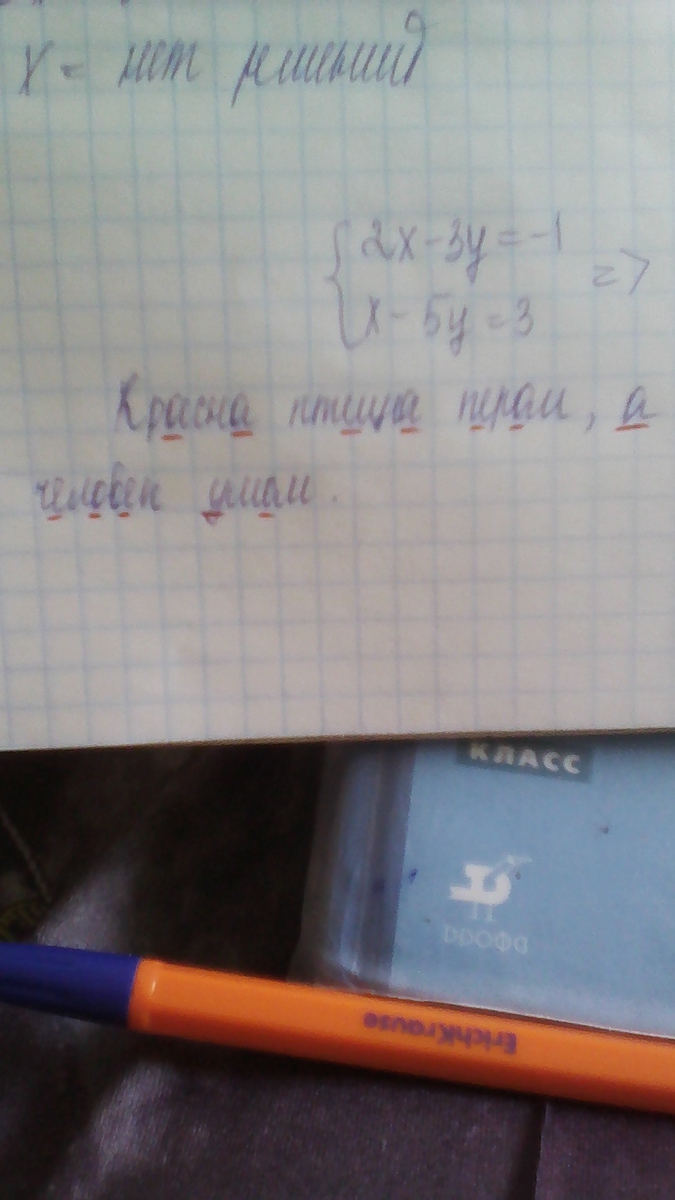 x = нет решений
2x-3y=-1
x-5y=3
=>
Красна птица перам, а
человек умам.
КЛАСС
дрофа
ErichKrause